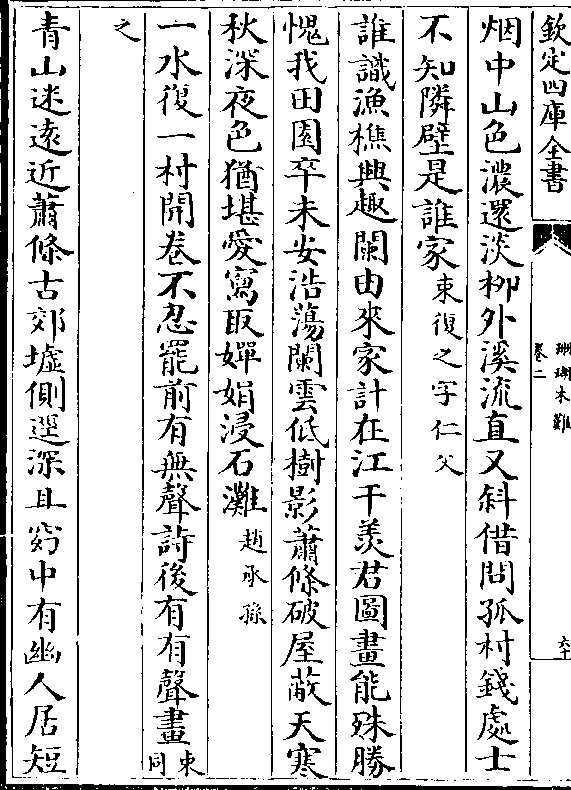 欽定四庫全書
珊瑚木難
卷二
六十
烟中山色濃還淡柳外溪流直又斜借問孤村錢處士
不知隣壁是誰家束復之字仁父
誰識漁樵興趣闌由來家計在江干羨君圖畫能殊勝
愧我田園卒未安浩蕩闌雲低樹影蕭條破屋敵天寒
秋深夜色猶堪愛寫取嬋娟浸石灘趙承孫
一水復一村開卷不忍罷前有無聲詩後有有聲畫束同
之
青山迷遠近蕭條古郊墟側逕深且窈中有幽人居短